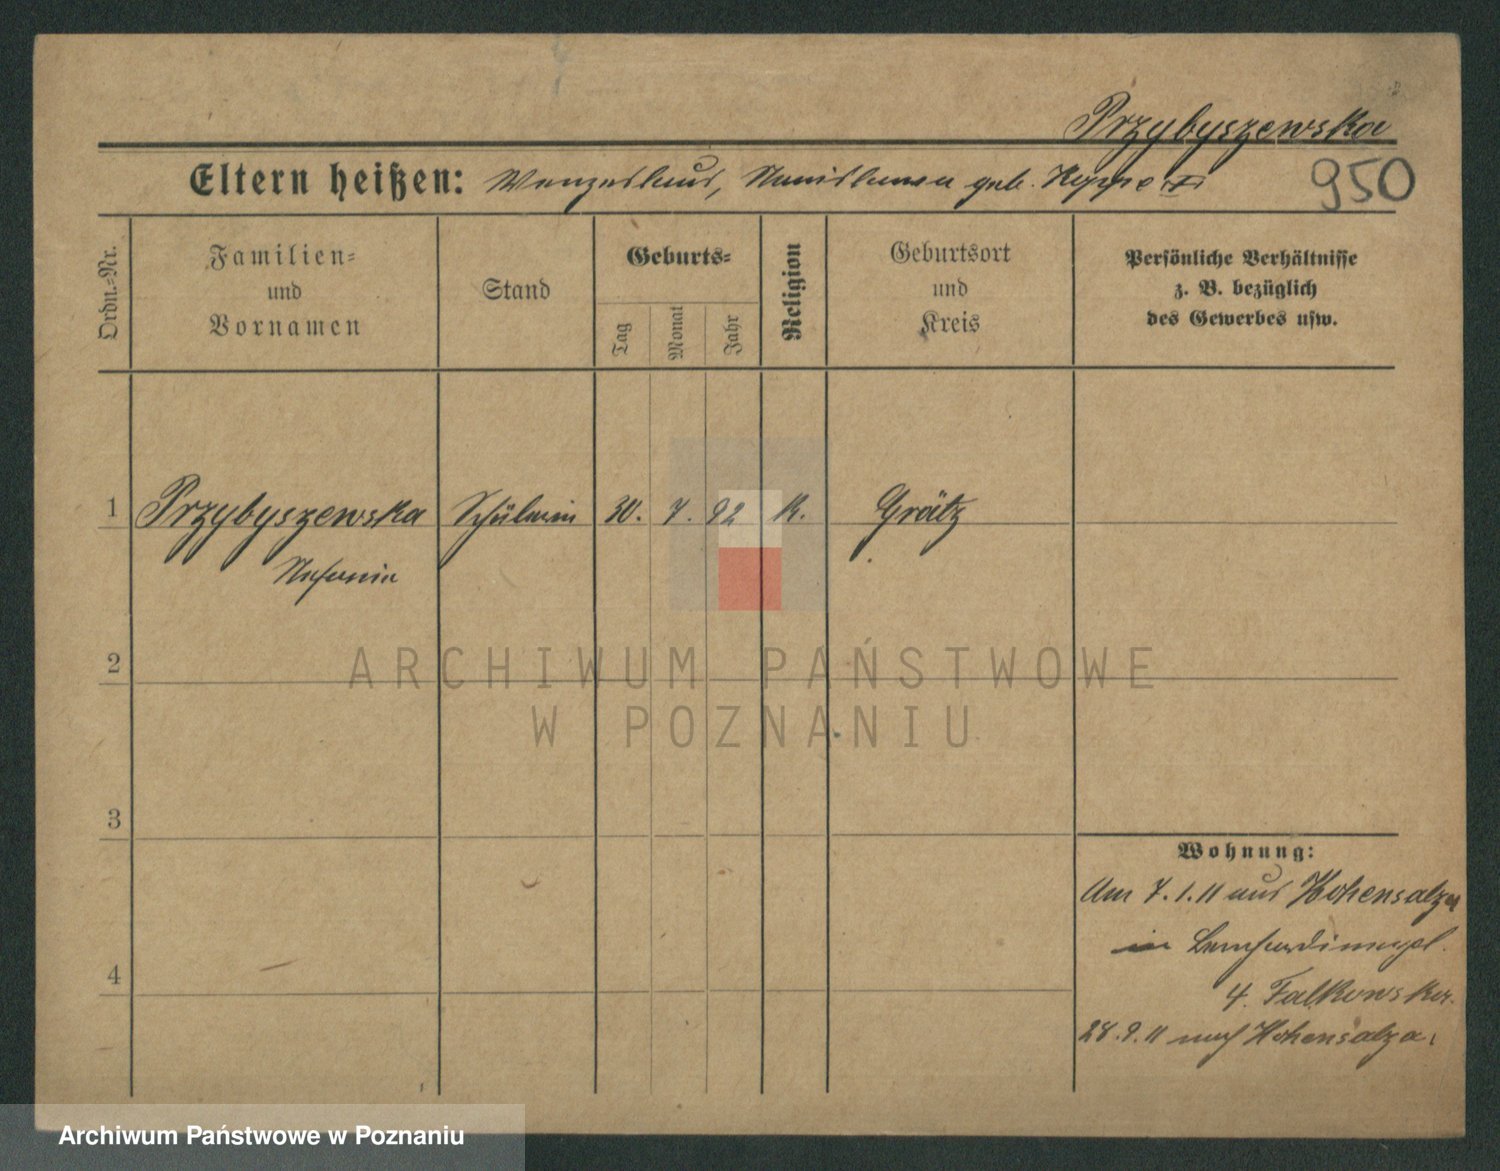 Przybyszewska
Eltern heißen: Wenzeslaus, Stanislawa geb. Koppe
950
Ordn.-Nr.
Familien-
und
Vornamen
Stand
Geburts-
Tag
Monat
Jahr
Religion
Geburtsort
und
Kreis
Persönliche Verhältnisse
z. B. bezüglich
des Gewerbes usw.
1 Przybyszewska Schülerin 30. 7. 92 K. Grätz
Stefanie
2
3
4
Wohnung:
Am 7.1.11 aus Hohensalza
in Bernhardinerpl.
4. Falkowska.
28.9.11 nach Hohensalza.
ARCHIWUM PAŃSTWOWE
W POZNANIU
Archiwum Państwowe w Poznaniu